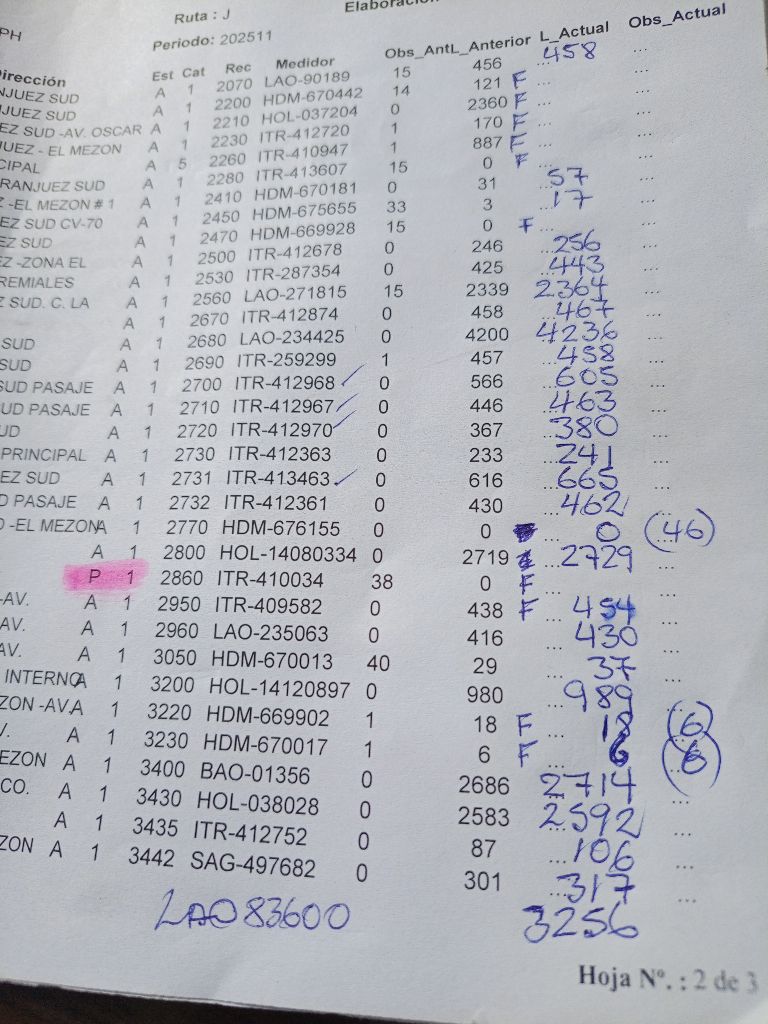 PH Ruta : J Elaboración
Periodo: 202511
irección Est Cat Rec Medidor Obs_Ant L_Anterior L_Actual Obs_Actual
NJUEZ SUD A 1 2070 LAO-90189 15 456 458 ...
NJUEZ SUD A 1 2200 HDM-670442 14 121 F ... ...
EZ SUD -AV. OSCAR A 1 2210 HOL-037204 0 2360 F ... ...
JUEZ - EL MEZON A 1 2230 ITR-412720 1 170 F ... ...
CIPAL A 5 2260 ITR-410947 1 887 F ... ...
RANJUEZ SUD A 1 2280 ITR-413607 15 0 F ... ...
Z -EL MEZON # 1 A 1 2410 HDM-670181 0 31 ...57 ...
EZ SUD CV-70 A 1 2450 HDM-675655 33 3 ...17 ...
EZ SUD A 1 2470 HDM-669928 15 0 F ... ...
Z -ZONA EL A 1 2500 ITR-412678 0 246 ...256 ...
REMIALES A 1 2530 ITR-287354 0 425 ...443 ...
Z SUD. C. LA A 1 2560 LAO-271815 15 2339 2364 ...
A 1 2670 ITR-412874 0 458 ...467 ...
SUD A 1 2680 LAO-234425 0 4200 4236 ...
SUD A 1 2690 ITR-259299 1 457 ...458 ...
SUD PASAJE A 1 2700 ITR-412968 ✓ 0 566 ...605 ...
UD PASAJE A 1 2710 ITR-412967 ✓ 0 446 ...463 ...
UD A 1 2720 ITR-412970 ✓ 0 367 ...380 ...
PRINCIPAL A 1 2730 ITR-412363 0 233 ...241 ...
EZ SUD A 1 2731 ITR-413463 ✓ 0 616 ...665 ...
D PASAJE A 1 2732 ITR-412361 0 430 ...462 ...
O -EL MEZON A 1 2770 HDM-676155 0 0 ... 0 (46)
A 1 2800 HOL-14080334 0 2719 ...2729 ...
P 1 2860 ITR-410034 38 0 F ... ...
-AV. A 1 2950 ITR-409582 0 438 F ...454 ...
AV. A 1 2960 LAO-235063 0 416 ...430 ...
AV. A 1 3050 HDM-670013 40 29 ...37 ...
INTERNO A 1 3200 HOL-14120897 0 980 ...989 ...
ZON -AV. A 1 3220 HDM-669902 1 18 F ...18 (6)
V. A 1 3230 HDM-670017 1 6 F ...6 (6)
EZON A 1 3400 BAO-01356 0 2686 2714 ...
CO. A 1 3430 HOL-038028 0 2583 2592 ...
A 1 3435 ITR-412752 0 87 ...106 ...
ZON A 1 3442 SAG-497682 0 301 ...317 ...
LAO83600 3256
Hoja Nº. : 2 de 3